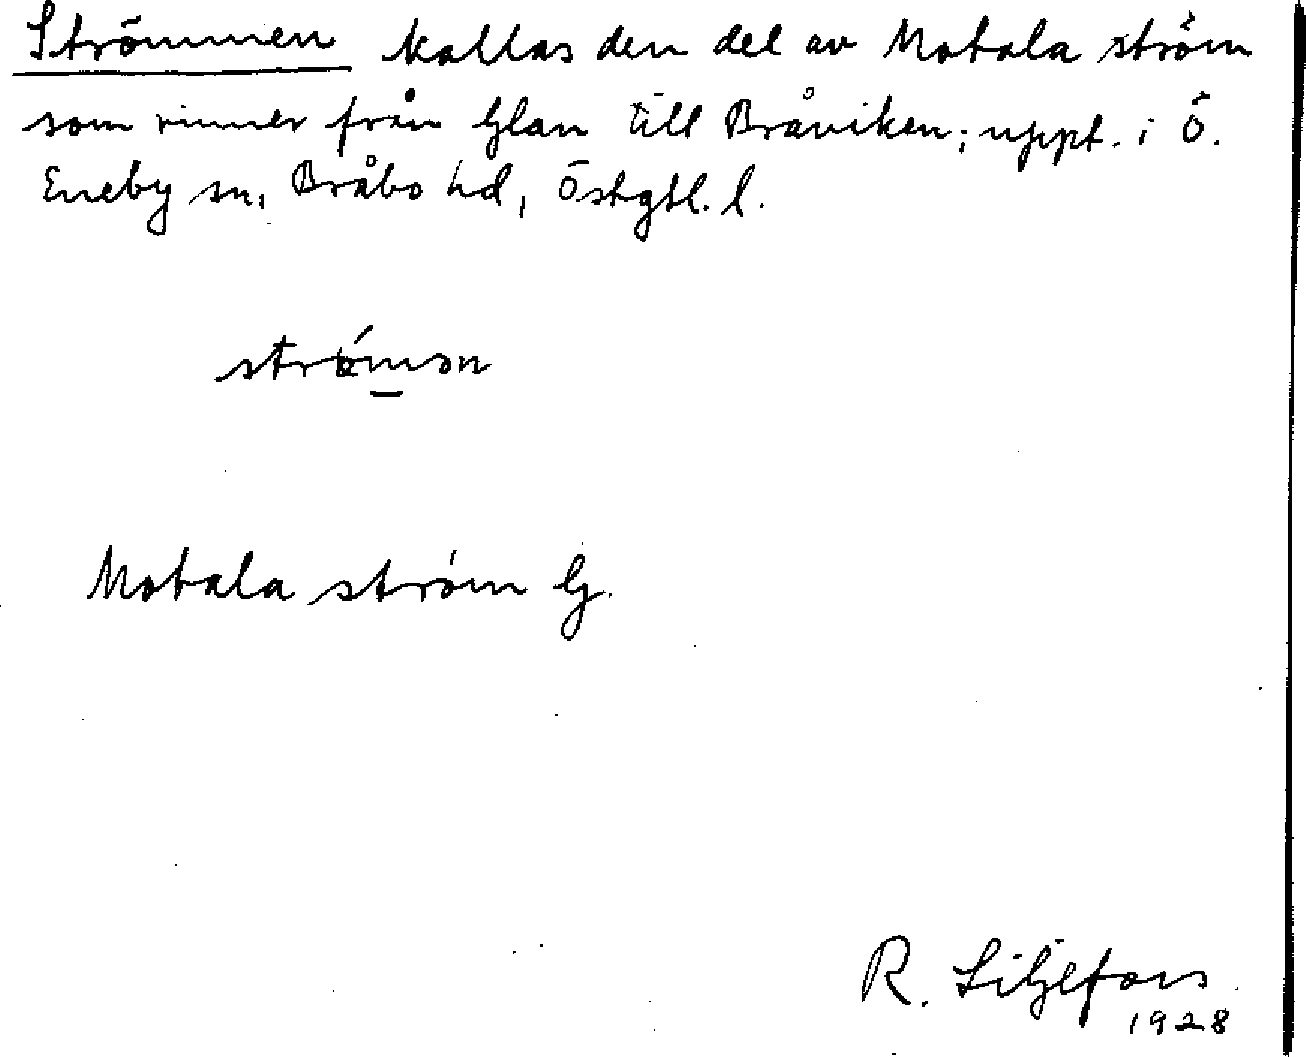 Strömmen kallas den del av Motala ström
som rinner från Glan till Bråviken; uppt. i Ö.
Eneby sn, Bråbo hd, Östgtl. l.
strö́mən
Motala ström G.
R. Liljefors
1928